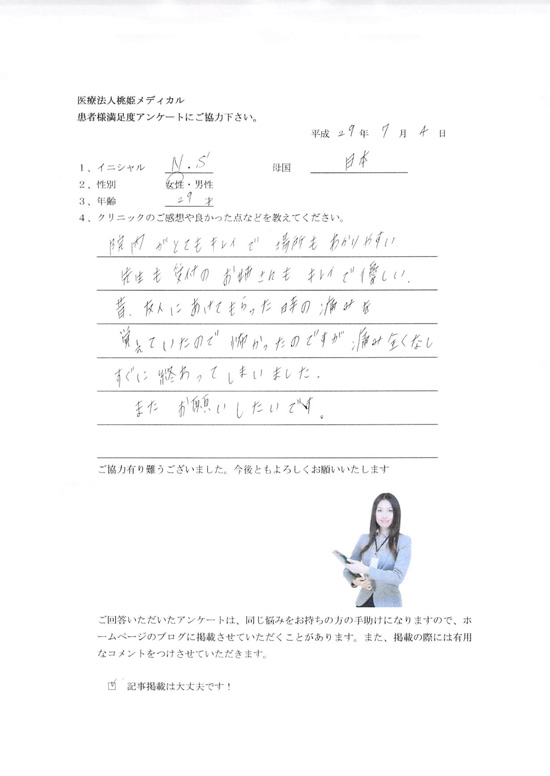 医療法人桃姫メディカル
患者様満足度アンケートにご協力下さい。
平成 29 年 7 月 4 日
1、イニシャル N.S 母国 日本
2、性別 女性・男性
3、年齢 29 才
4、クリニックのご感想や良かった点などを教えてください。
院内がとてもキレイで 場所も わかりやすい
先生も受付のお姉さんも キレイで優しい.
昔、友人にあけてもらった時の痛みを
覚えていたので 怖かったのですが 痛み全くなし
すぐに終わってしまいました.
また お願いしたいです。
ご協力有り難うございました。今後ともよろしくお願いいたします
ご回答いただいたアンケートは、同じ悩みをお持ちの方の手助けになりますので、ホ
ームページのブログに掲載させていただくことがあります。また、掲載の際には有用
なコメントをつけさせていただきます。
☑ 記事掲載は大丈夫です！